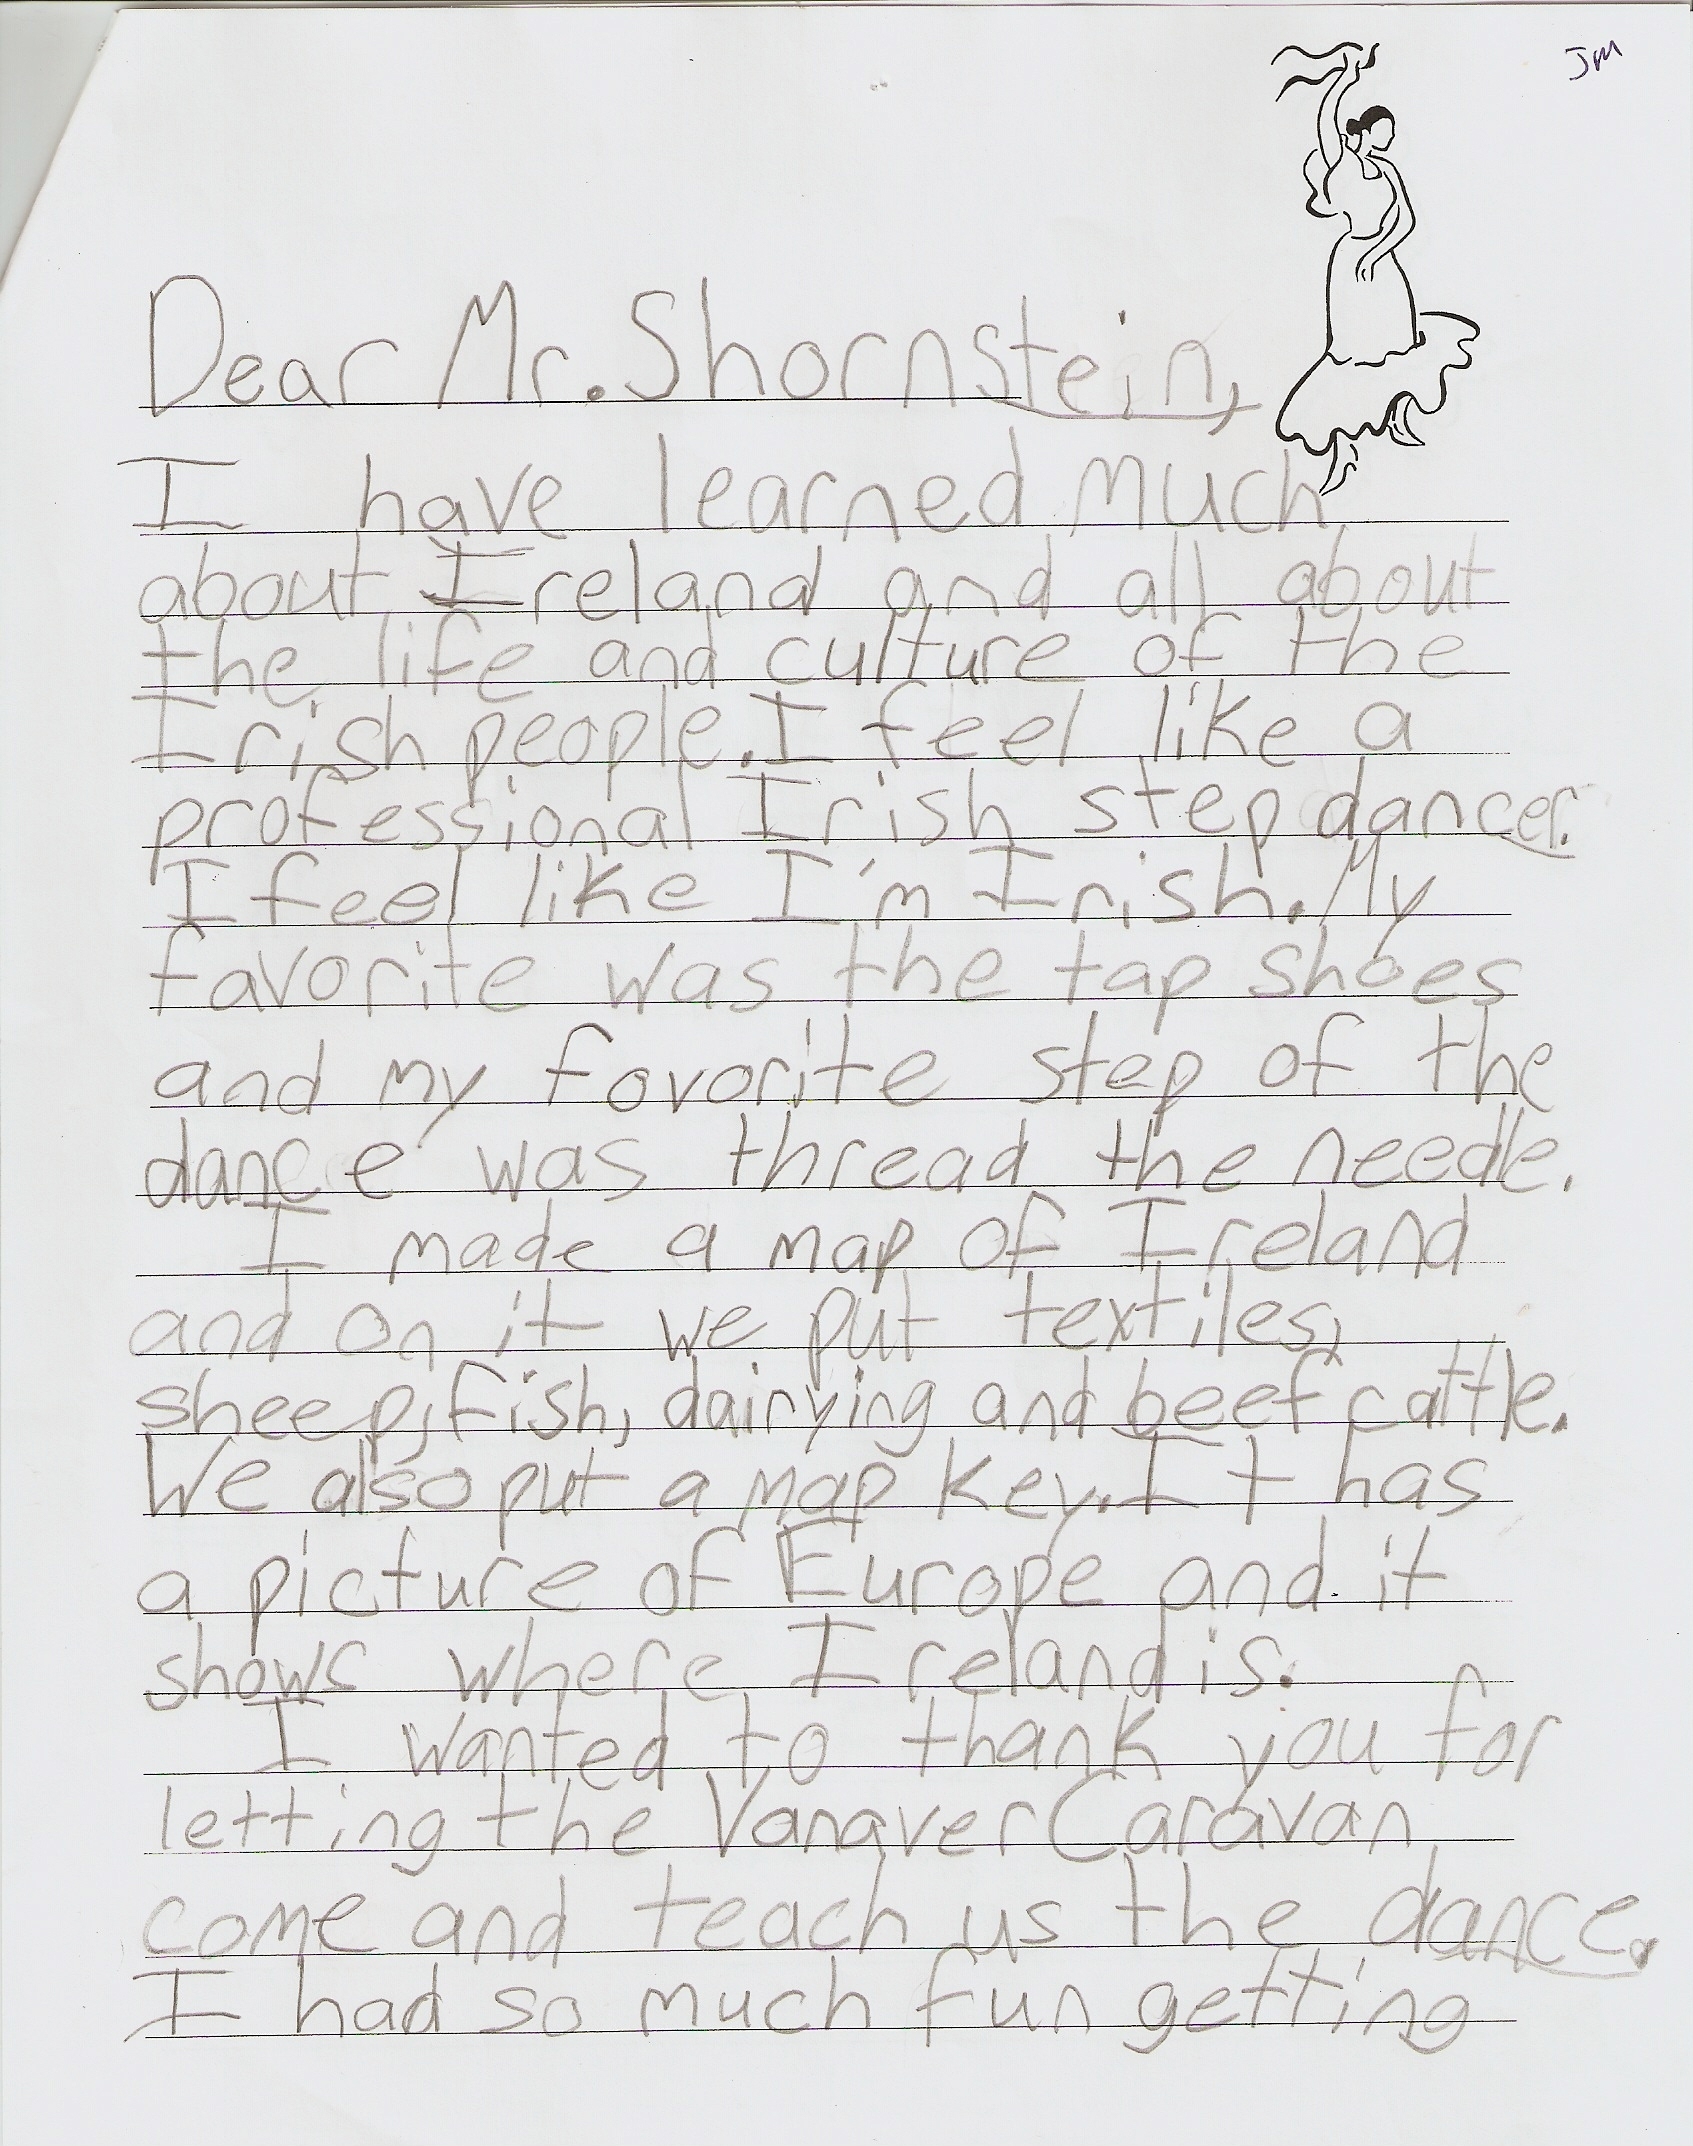 JM
Dear Mr. Shornstein,
I have learned much
about Ireland and all about
the life and culture of the
Irish people. I feel like a
professional Irish step dancer.
I feel like I'm Irish. My
favorite was the tap shoes
and my fovorite step of the
dance was thread the needle.
I made a map of Ireland
and on it we put textiles,
sheep, fish, dairying and beef cattle.
We also put a map key. It has
a picture of Europe and it
shows where Ireland is.
I wanted to thank you for
letting the Vanaver Caravan
come and teach us the dance.
I had so much fun getting